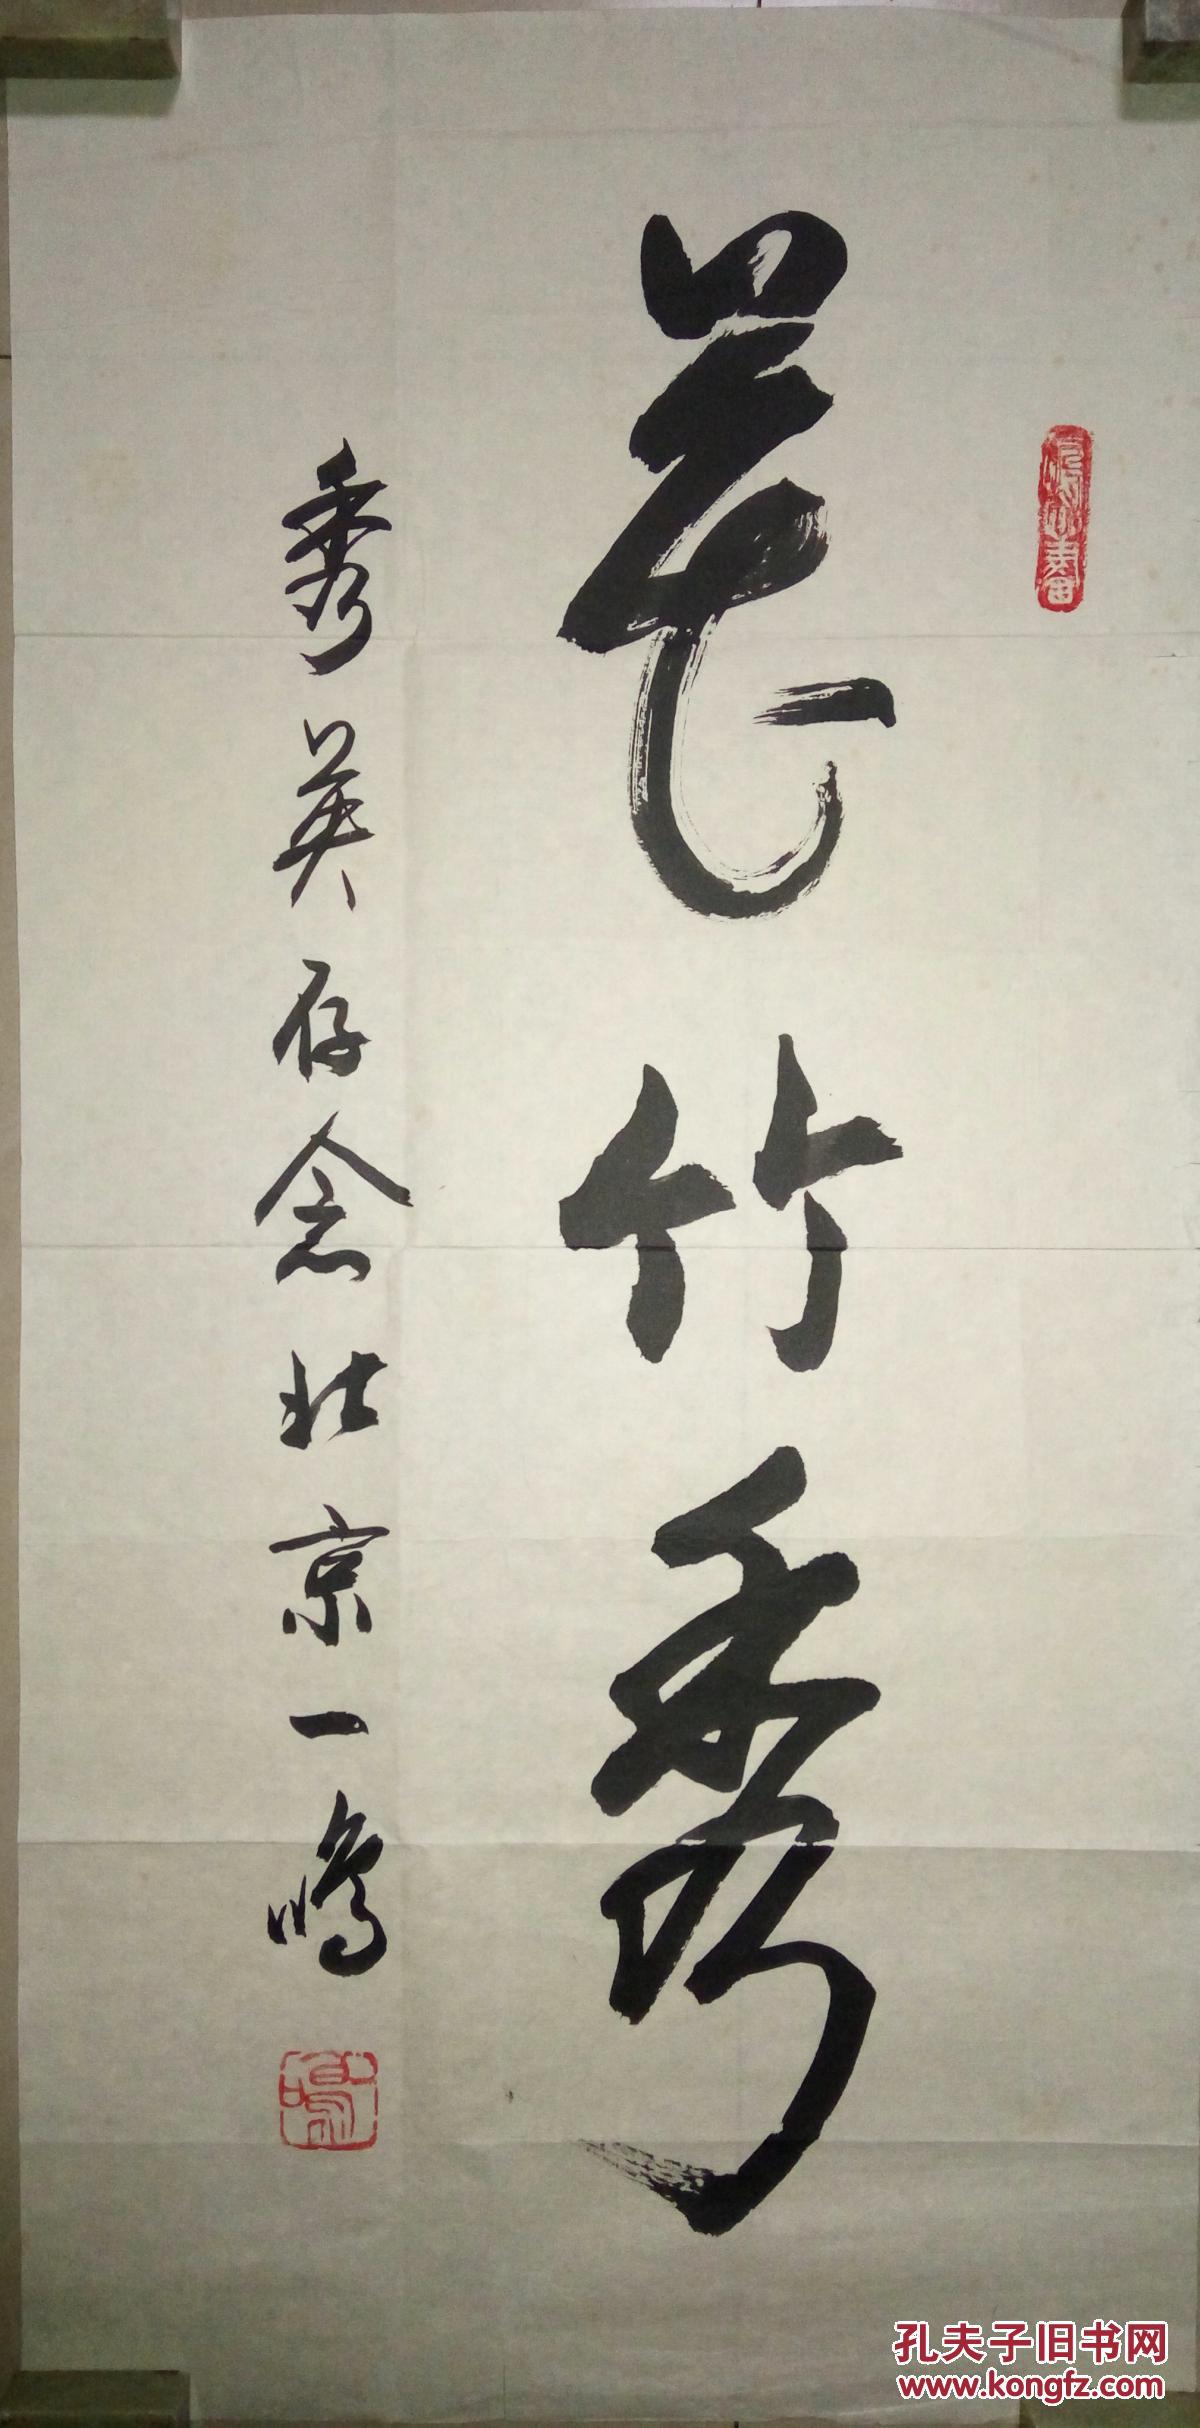 花竹秀
秀英存念北京一鸣
孔夫子旧书网
www.kongfz.com